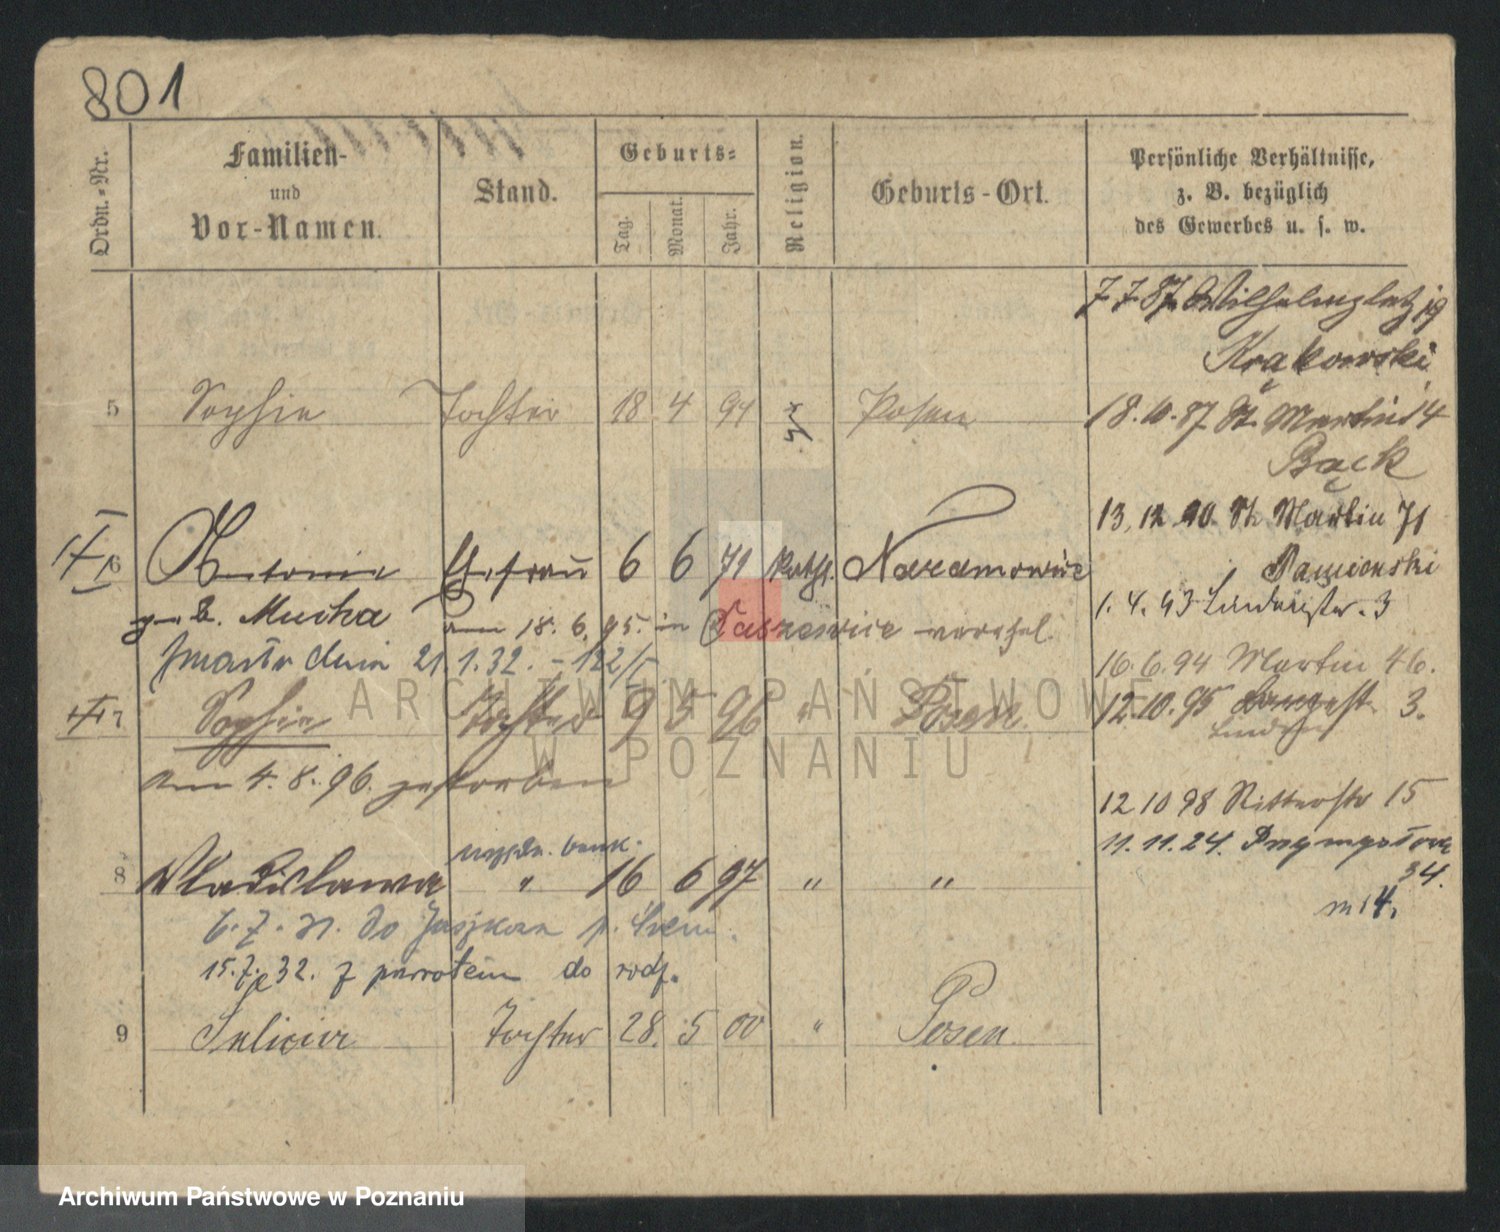 801
Ordn.-Nr.
Familien-
und
Vor-Namen.
Stand.
Geburts-
Tag.
Monat.
Jahr.
Religion.
Geburts-Ort.
Persönliche Verhältnisse,
z. B. bezüglich
des Gewerbes u. s. w.
7 7 87 Wilhelmsplatz 19
Krąkowski
5 Sophie Tochter 18 4 94 Posen
18.10.87 St. Martin 14
Bąck
13.12.90 St. Martin 71
6 Antonie Ehefrau 6 6 71 kath. Naramowice
geb. Mucha am 18.6.95. in verehel.
1.4.93 3
zmarła dnia 21 1.32. - 122/
16.6.94 Martin 46.
7 Sophie Tochter 9 5 96 " Posen
12.10.95 3.
am 4.8.96. gestorben
12 10 98 Ritterstr 15
11.11.24.
34.
m 14,
8 Wladislawa " 16 6 97 " "
do
15.7.32. z powrotem do rodz.
9 Felicia Tochter 28. 5 00 " Posen
ARCHIWUM PAŃSTWOWE
W POZNANIU
Archiwum Państwowe w Poznaniu